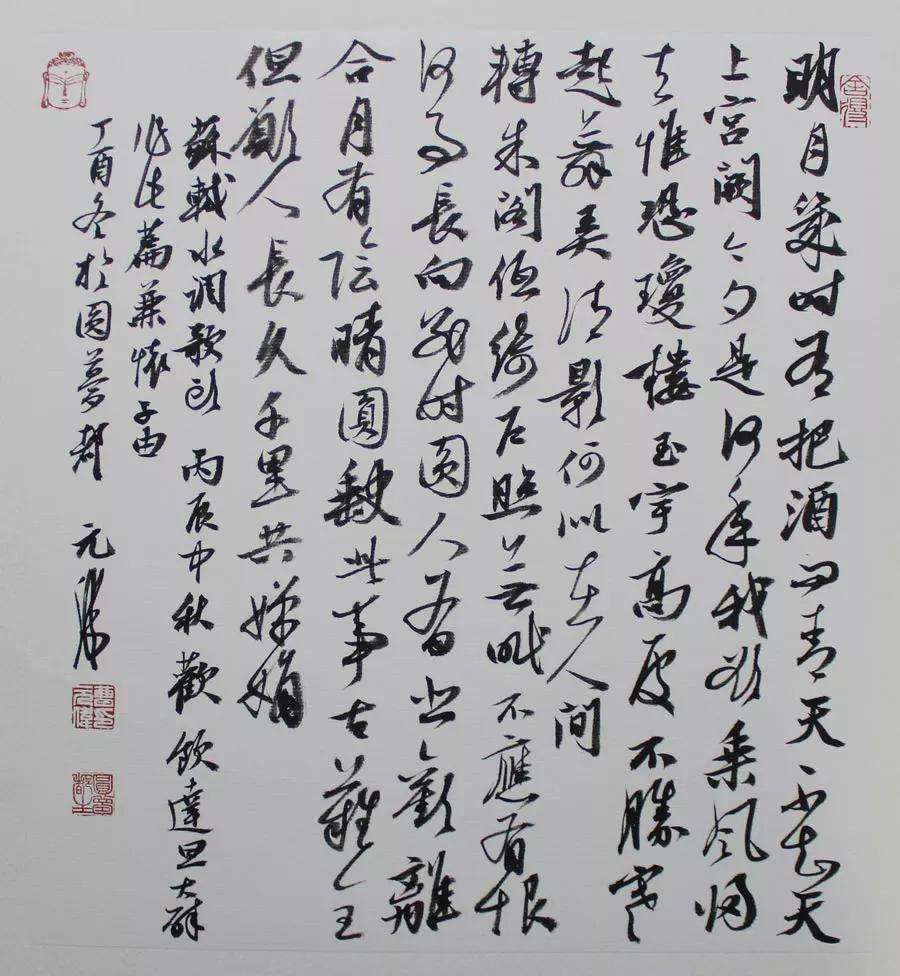 明月幾时有把酒问青天不知天
上宫阙今夕是何年我欲乘风归
去惟恐瓊樓玉宇高处不勝寒
起舞弄清影何似在人间
轉朱阁低绮户照无眠不應有恨
何事長向别时圆人有悲歡離
合月有阴晴圆缺此事古難全
但願人長久千里共嬋娟
蘇軾水调歌头 丙辰中秋歡飲達旦大醉
作此篇兼懷子由
丁酉冬於圆夢都 元